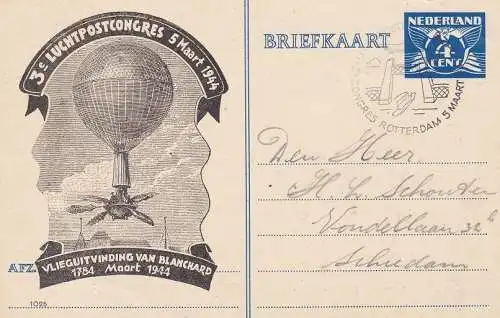 3e LUCHTPOSTCONGRES 5 Maart 1944
VLIEGUITVINDING VAN BLANCHARD
1784 Maart 1944
AFZ.
1026
BRIEFKAART
NEDERLAND
4
CENT
CONGRES ROTTERDAM 5 MAART
Den Heer
H L Schouten
Vondellaan 32b
Schiedam